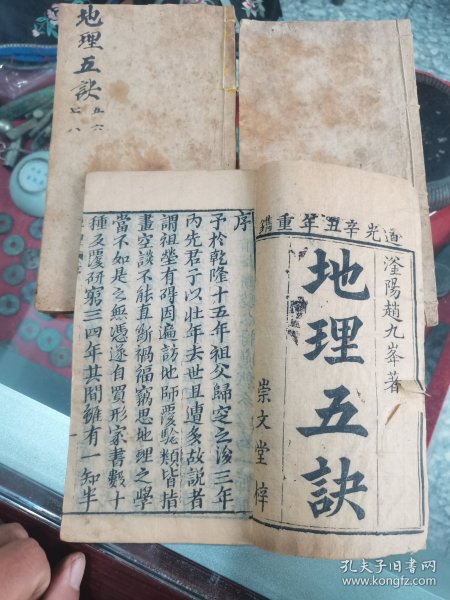 地理五訣
五六
七八
道光辛丑年重鐫
滏陽趙九峯著
地理五訣
崇文堂梓
序
予於乾隆十五年祖父歸窆之後三年
內先君子以壯年去世且遭多故說者
謂祖塋有碍因遍訪地師覆驗類皆指
畫空談不能直斷禍福竊思地理之學
當不如是之無憑遂自買形家書數十
種反覆研窮三四年其間雖有一知半
孔夫子旧书网
www.kongfz.com